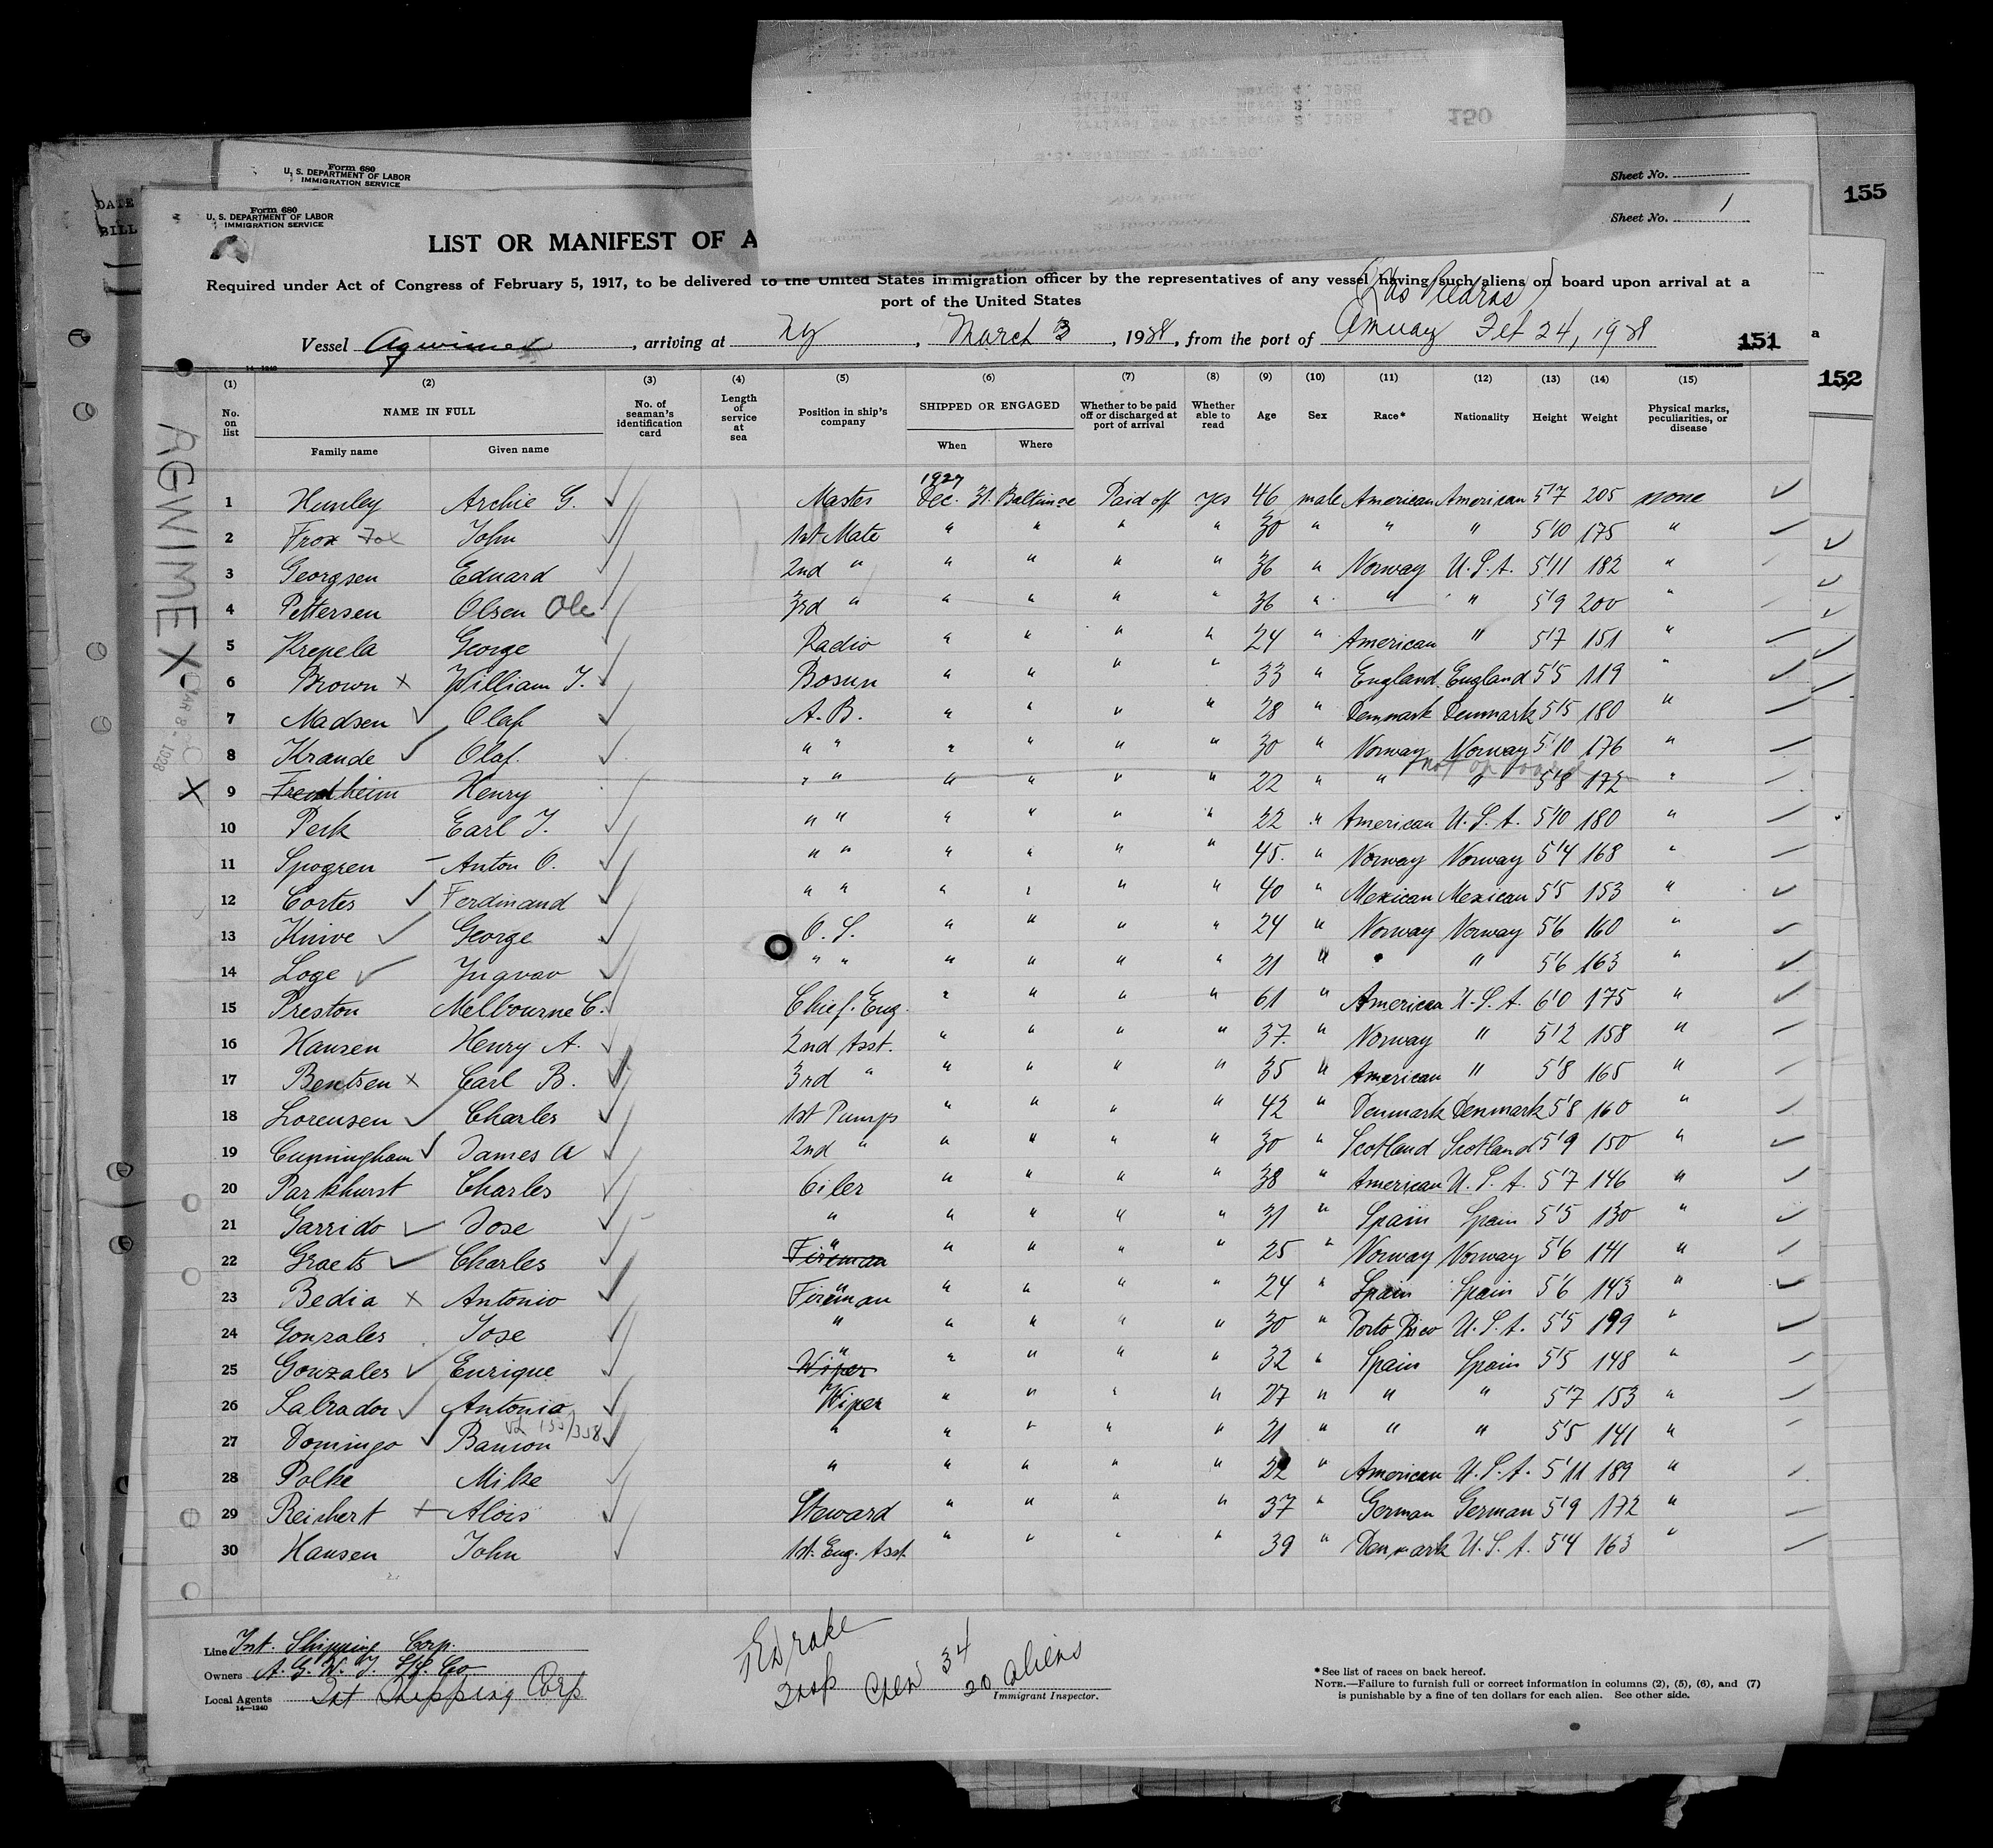 Form 680
U. S. DEPARTMENT OF LABOR
IMMIGRATION SERVICE
Sheet No.
155
Form 680
U. S. DEPARTMENT OF LABOR
IMMIGRATION SERVICE
Sheet No. 1
150
LIST OR MANIFEST OF A
Required under Act of Congress of February 5, 1917, to be delivered to the United States immigration officer by the representatives of any vessel having such aliens on board upon arrival at a
port of the United States
(Las Piedras)
Vessel Agwimex, arriving at NY, March 3, 1928, from the port of Amuay Feb 24, 1928
151
152
AGWIMEX
MAR 8 - 1928
(1) (2) (3) (4) (5) (6) (7) (8) (9) (10) (11) (12) (13) (14) (15)
No. on list NAME IN FULL Family name Given name No. of seaman's identification card Length of service at sea Position in ship's company SHIPPED OR ENGAGED When Where Whether to be paid off or discharged at port of arrival Whether able to read Age Sex Race* Nationality Height Weight Physical marks, peculiarities, or disease
1 Hunley Archie G. Master 1927 Dec. 31. Baltimore Paid off yes 46 male American American 5'7 205 none
2 Frox Fox John 1st Mate " " " " 30 " " " 5'10 175 "
3 Georgsen Eduard 2nd " " " " " 36 " Norway U.S.A. 5'11 182 "
4 Pettersen Olsen Ole 3rd " " " " " 36 " " " 5'9 200 "
5 Krepela George Radio " " " " 24 " American " 5'7 151 "
6 Brown x William J. Bosun " " " " 33 " England England 5'5 119 "
7 Madsen Olaf A.B. " " " " 28 " Denmark Denmark 5'5 180 "
8 Kraude Olaf. " " " " " " 30 " Norway Norway 5'10 176 "
not on board
9 Frendheim Henry " " " " " " 22 " " " 5'8 172 "
10 Peck Earl J. " " " " " " 22 " American U.S.A. 5'10 180 "
11 Spogren Anton O. " " " " " " 45. " Norway Norway 5'4 168 "
12 Cortes Ferdinand " " " " " " 40 " Mexican Mexican 5'5 153 "
13 Knive George O.S. " " " " 24 " Norway Norway 5'6 160 "
14 Loge Ingvar " " " " " " 21 " " " 5'6 163 "
15 Preston Melbourne C. Chief. Eng. " " " " 61 " American U.S.A. 6'0 175 "
16 Hansen Henry A. 2nd Asst. " " " " 37. " Norway " 5'2 158 "
17 Bentsen x Carl B. 3rd " " " " " 35 " American " 5'8 165 "
18 Lorensen Charles 1st Pumps " " " " 42 " Denmark Denmark 5'8 160 "
19 Cunningham James A 2nd " " " " " 30 " Scotland Scotland 5'9 150 "
20 Parkhurst Charles Oiler " " " " 38 " American U.S.A. 5'7 146 "
21 Garrido Jose " " " " " 31 " Spain Spain 5'5 130 "
22 Graets Charles Fireman " " " " " 25 " Norway Norway 5'6 141 "
23 Bedia x Antonio Fireman " " " " 24 " Spain Spain 5'6 143 "
24 Gonzales Jose " " " " " 30 " Porto Rico U.S.A. 5'5 199 "
25 Gonzales Enrique Wiper " " " " " 32 " Spain Spain 5'5 148 "
26 Labrador Antonio Wiper " " " " 27 " " " 5'7 153 "
27 Domingo Banion " " " " " 21 " " " 5'5 141 "
28 Polke Mike " " " " " 22 " American U.S.A. 5'11 189 "
29 Reichert x Alois Steward " " " " 37 " German German 5'9 172 "
30 Hansen John 1st. Eng. Asst. " " " " 39 " Denmark U.S.A. 5'4 163 "
Line Int. Shipping Corp.
Owners A. G. W. I. S/S. Co
Local Agents Int Shipping Corp
14—1240
Drake
Insp Crew 34
20 aliens
Immigrant Inspector.
* See list of races on back hereof.
NOTE.—Failure to furnish full or correct information in columns (2), (5), (6), and (7)
is punishable by a fine of ten dollars for each alien. See other side.